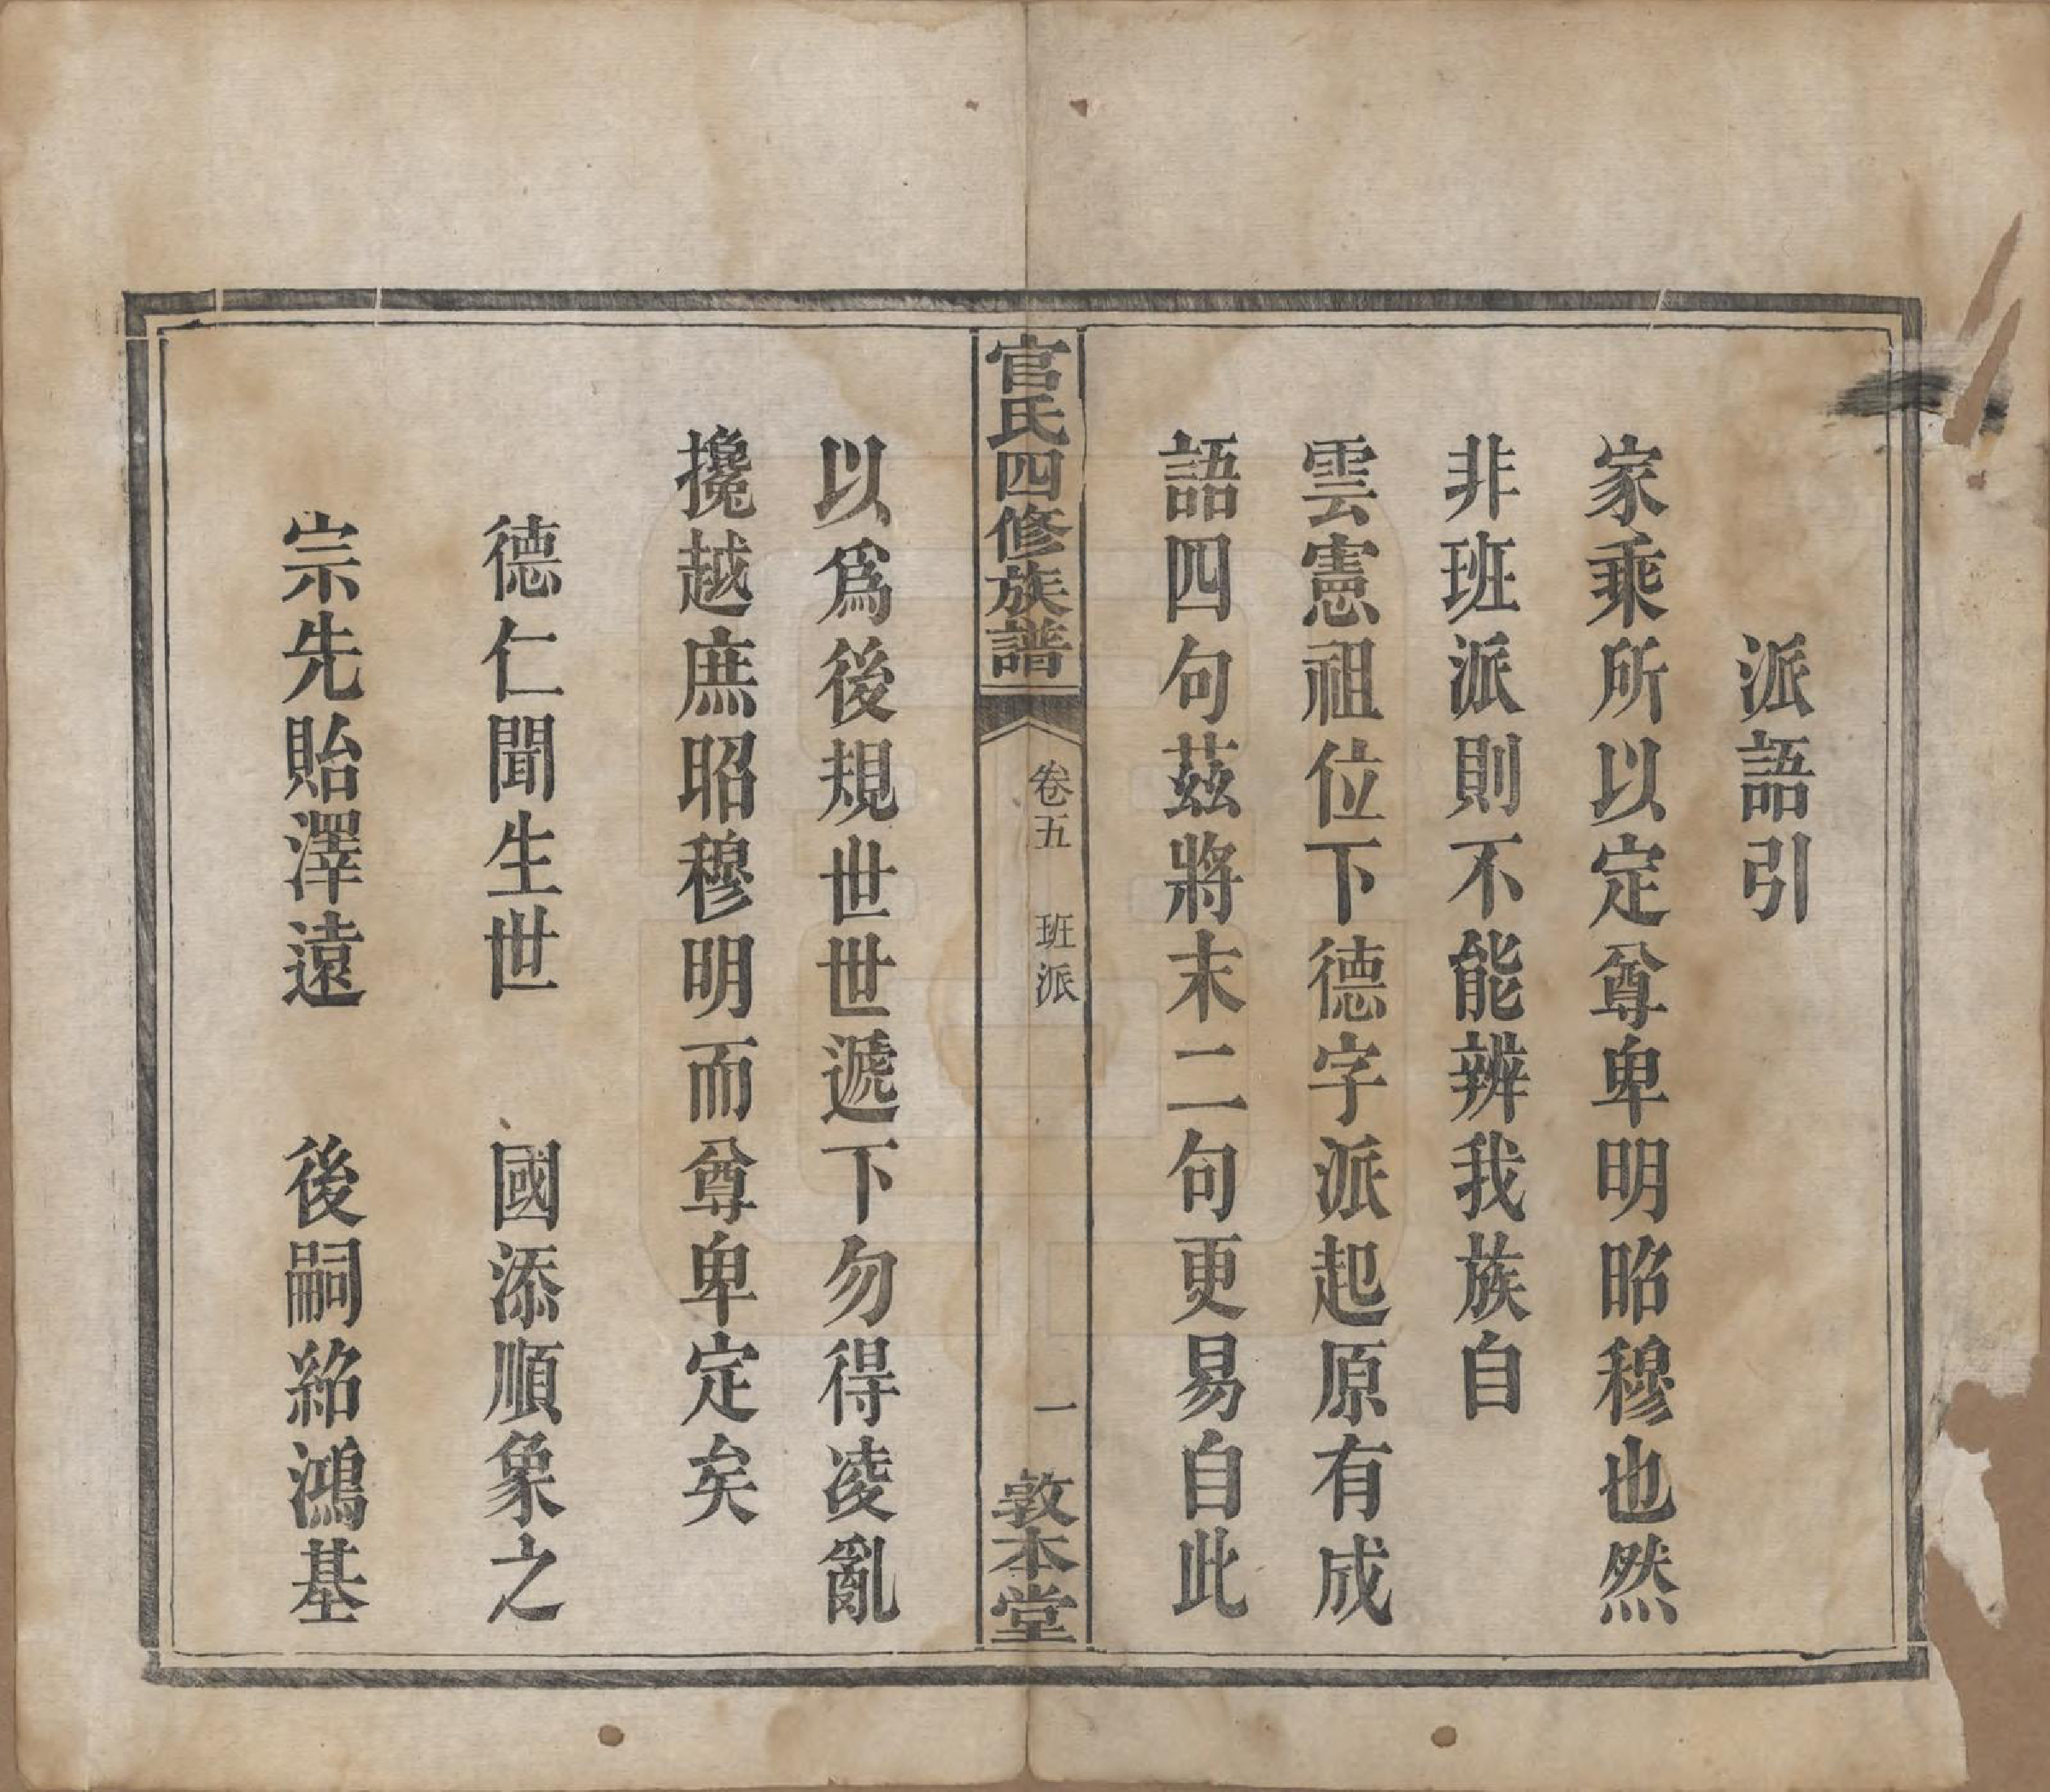 派語引
家乘所以定尊卑明昭穆也然
非班派則不能辨我族自
雲憲祖位下德字派起原有成
語四句茲將末二句更易自此
官氏四修族譜
卷五 班派
一
敦本堂
以爲後規世世遞下勿得凌亂
攙越庶昭穆明而尊卑定矣
德仁聞生世 國添順象之
宗先貽澤遠 後嗣紹鴻基